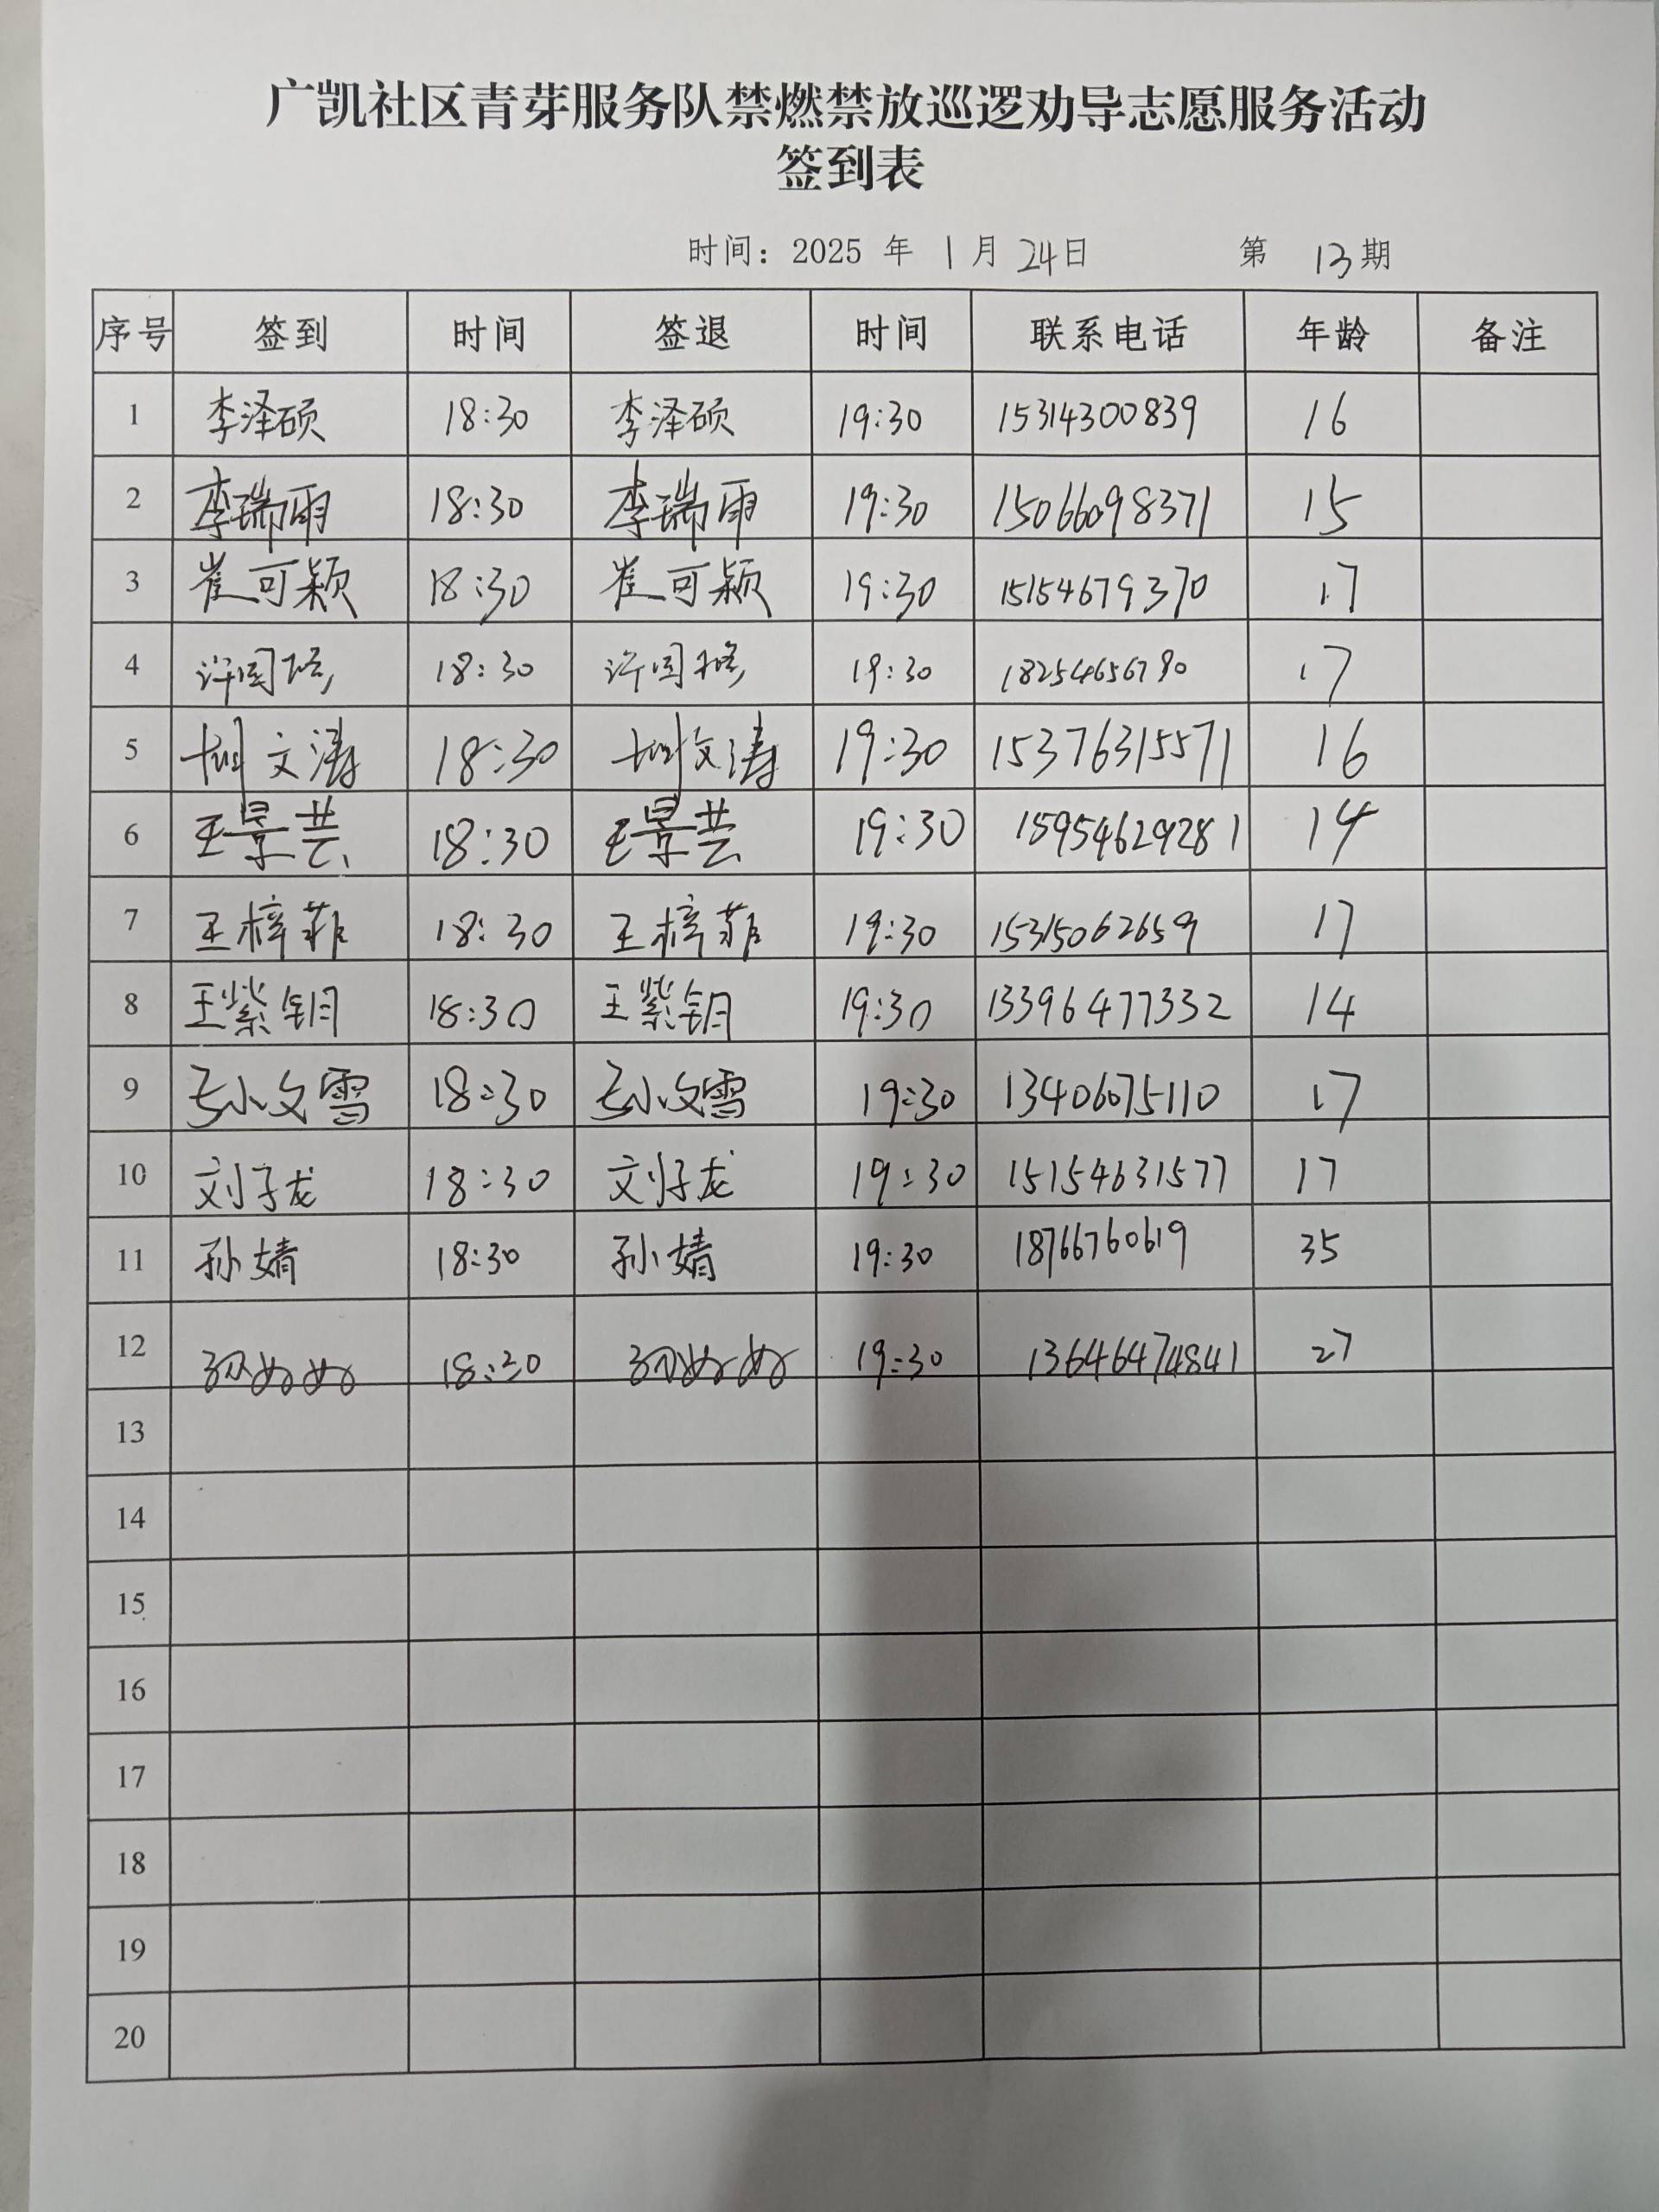 广凯社区青芽服务队禁燃禁放巡逻劝导志愿服务活动
签到表
时间：2025 年 1 月 24 日 第 13 期
序号 签到 时间 签退 时间 联系电话 年龄 备注
1 李泽硕 18:30 李泽硕 19:30 15314300839 16
2 李瑞雨 18:30 李瑞雨 19:30 15066098371 15
3 崔可颖 18:30 崔可颖 19:30 15154679370 17
4 许国 18:30 许国 19:30 18254656790 17
5 文涛 18:30 文涛 19:30 15376315571 16
6 王景芸 18:30 王景芸 19:30 15954629281 14
7 王梓菲 18:30 王梓菲 19:30 15315062659 17
8 王紫钥 18:30 王紫钥 19:30 13396477332 14
9 孙文雪 18:30 孙文雪 19:30 13406075110 17
10 刘子龙 18:30 刘子龙 19:30 15154631577 17
11 孙婧 18:30 孙婧 19:30 18766760619 35
12 18:30 19:30 13646474841 27
13
14
15
16
17
18
19
20